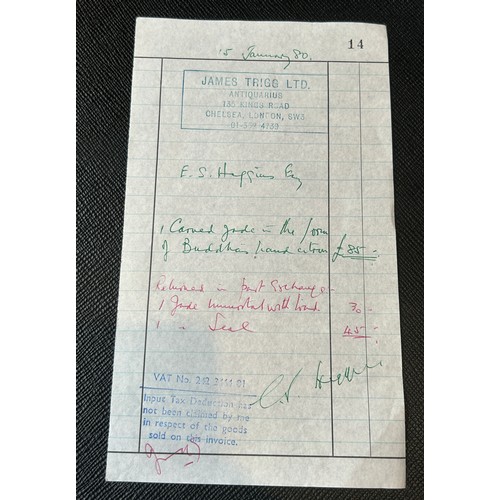 14
15 January 80.
JAMES TRIGG LTD.
ANTIQUARIUS
135 KINGS ROAD
CHELSEA, LONDON, SW3
E. S. Higgins Esq
1 Carved Jade in the form
of Buddhas hand citron £85 -
Returned in part Exchange -
1 Jade with 30 -
1 " Seal 45 -
VAT No. 242
Input Tax Deduction has
not been claimed by me
in respect of the goods
sold on this invoice.